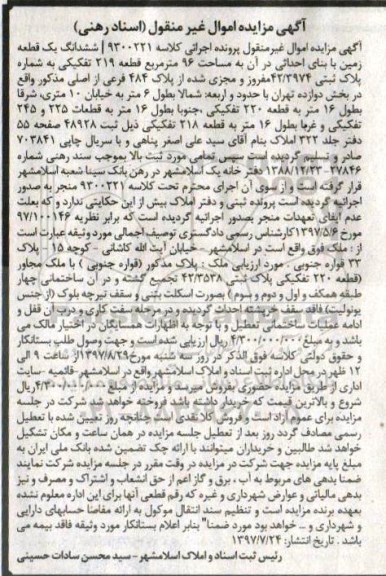 آگهی مزایده اموال غیر منقول (اسناد رهنی)
آگهی مزایده اموال غیرمنقول پرونده اجرائی کلاسه ۹۳۰۰۲۲۱ | ششدانگ یک قطعه
زمین با بنای احداثی در آن به مساحت ۹۶ مترمربع قطعه ۲۱۹ تفکیکی به شماره
پلاک ثبتی ۴۲/۳۹۷۴مفروز و مجزی شده از پلاک ۴۸۴ فرعی از اصلی مذکور واقع
در بخش دوازده تهران با حدود و اربعه: شمالا بطول ۶ متر به خیابان ۱۰ متری، شرقا
بطول ۱۶ متر به قطعه ۲۲۰ تفکیکی ،جنوبا بطول ۱۶ متر به قطعات ۲۲۵ و ۲۴۵
تفکیکی و غربا بطول ۱۶ متر به قطعه ۲۱۸ تفکیکی ذیل ثبت ۴۸۹۲۸ صفحه ۵۵
دفتر جلد ۳۲۲ املاک بنام آقای سید علی اصغر پناهی و با سریال چاپی ۷۰۳۸۴۱
صادر و تسلیم گردیده است سپس تمامی مورد ثبت بالا بموجب سند رهنی شماره
۲۷۸۴۶-۱۳۸۸/۱۲/۲۳ دفتر خانه یک اسلامشهر در رهن بانک سینا شعبه اسلامشهر
قرار گرفته است و از سوی آن اجرای محترم تحت کلاسه ۹۳۰۰۲۲۱ منجر به صدور
اجرائیه گردیده است پرونده ثبتی و دفتر املاک بیش از این حکایتی ندارد و که بعلت
عدم ایفای تعهدات منجر بصدور اجرائیه گردیده است که برابر نظریه ۹۷/۱۰۰۱۴۶
مورخ ۱۳۹۷/۵/۶کارشناس رسمی دادگستری توصیف اجمالی مورد وثیقه عبارت است
از : ملک فوق واقع است در اسلامشهر- خیابان آیت الله کاشانی - کوچه ۱۵ - پلاک
۳۳ قواره جنوبی - مورد ارزیابی ملک : پلاک مذکور (قواره جنوبی ) با ملک مجاور
(قطعه ۲۲۰ تفکیکی پلاک ثبتی ۴۲/۳۵۳۸ تجمیع گشته و در آن ساختمانی چهار
طبقه همکف و اول و دوم و سوم ) بصورت اسکلت بتنی و سقف تیرچه بلوک (از جنس
یونولیت) فاقد سقف خرپشته احداث گردیده و در مرحله سفت کاری و درب آن قفل و
ادامه عملیات ساختمانی تعطیل و با توجه به اظهارات همسایگان در اختیار مالک می
باشد و به مبلغ ۴/۳۰۰/۰۰۰/۰۰۰ ریال ارزیابی شده است و جهت وصول طلب بستانکار
و حقوق دولتی کلاسه فوق الذکر در روز سه شنبه مورخ۱۳۹۷/۸/۲۹از ساعت ۹ الی
۱۲ ظهردر محل اداره ثبت اسناد و املاک اسلامشهر واقع در اسلامشهر-قائمیه -سایت
اداری از طریق مزایده حضوری بفروش میرسد و مزایده از مبلغ ۴/۳۰۰/۰۰۰/۰۰۰ریال
شروع و بالاترین قیمت که خریدار داشته باشد فروخته خواهد شد شرکت در جلسه
مزایده برای عموم آزاد است و فروش کلا نقدی است چنانچه روز تعیین شده با تعطیل
رسمی مصادف گردد روز بعد از تعطیل جلسه مزایده در همان ساعت و مکان تشکیل
خواهد شد طالبین و خریداران میتوانند با ارائه چک تضمین شده بانک ملی ایران به
مبلغ پایه مزایده جهت شرکت در مزایده در وقت مقرر در جلسه مزایده شرکت نمایند
ضمنا بدهی های مربوط به آب ، برق و گاز اعم از حق انشعاب و اشتراک و مصرف و نیز
بدهی مالیاتی و عوارض شهرداری و غیره که رقم قطعی آنها برای این اداره معلوم نشده
بعهده برنده مزایده است و تنظیم سند انتقال موکول به ارائه مفاصا حسابهای دارایی
و شهرداری و ... خواهد بود مورد ضمنا" بنابر اعلام بستانکار مورد وثیقه فاقد بیمه می
باشد . تاریخ انتشار: ۱۳۹۷/۷/۲۴
رئیس ثبت اسناد و املاک اسلامشهر - سید محسن سادات حسینی